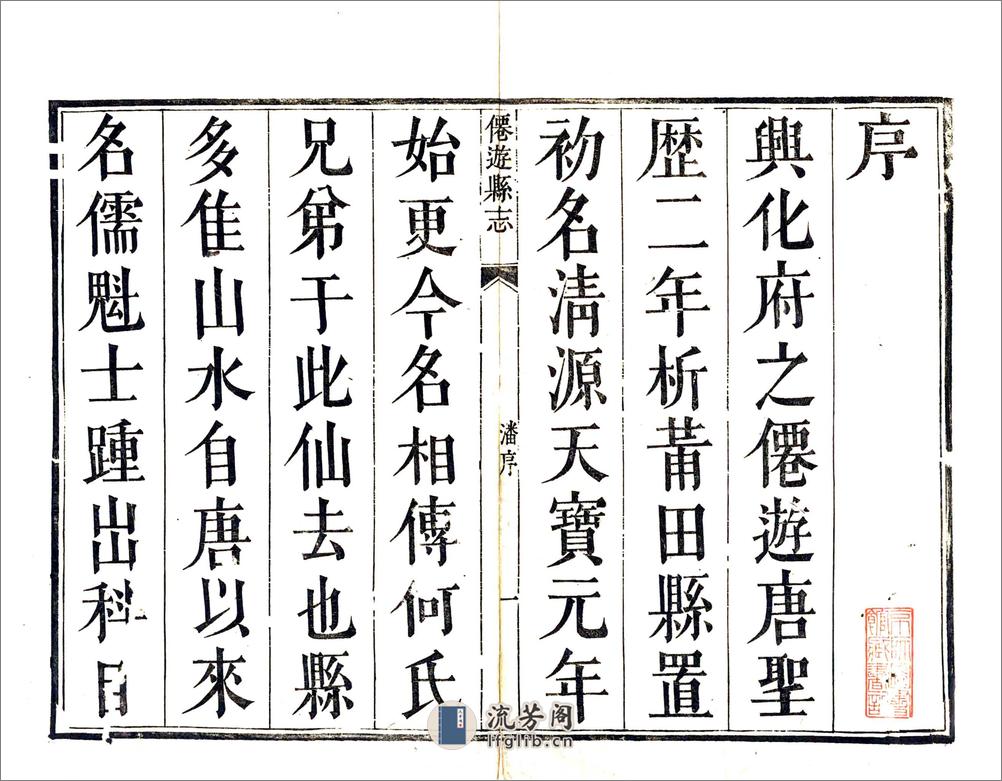 序
興化府之僊遊唐聖
歴二年析莆田縣置
初名清源天寶元年
僊遊縣志
潘序
一
始更今名相傳何氏
兄弟于此仙去也縣
多隹山水自唐以來
名儒魁士踵出科目
流芳阁
lfglib.cn